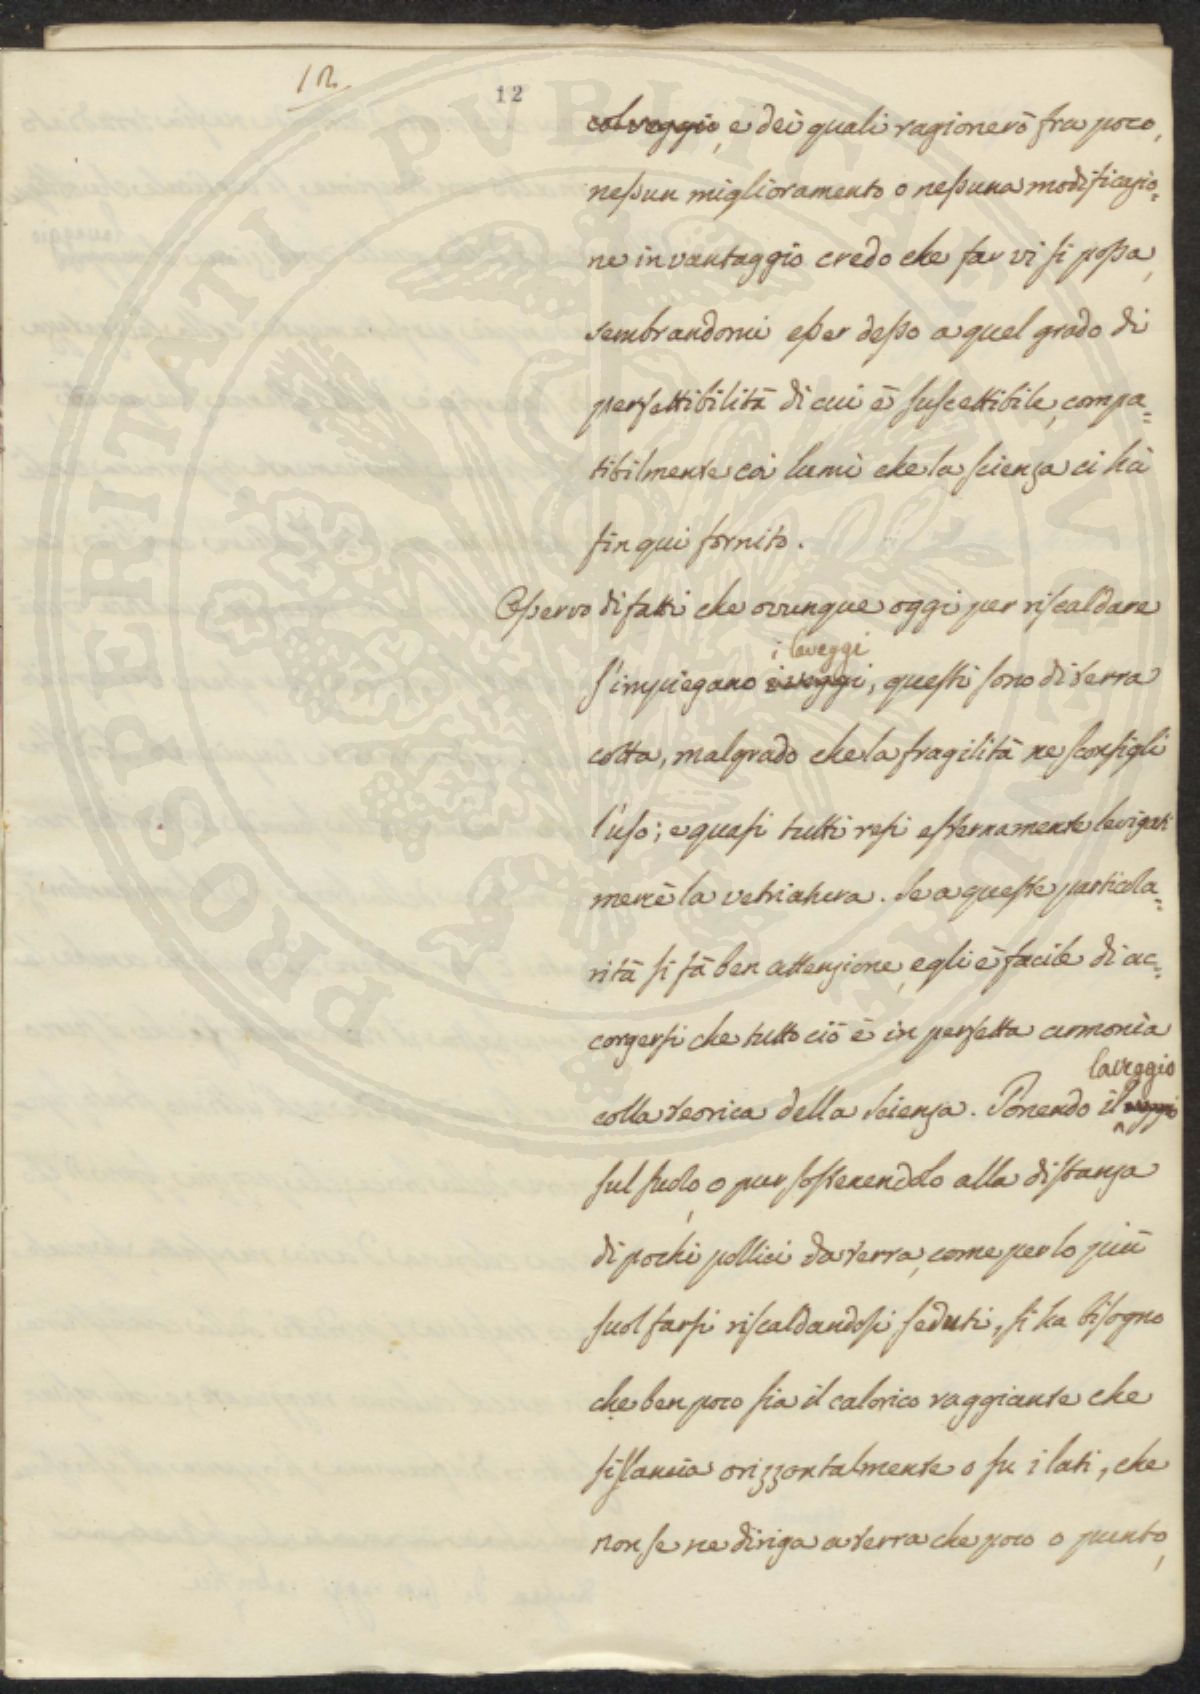 12.
12
col veggio, e dei quali ragionerò fra poco,
nessun miglioramento o nessuna modificazio=
ne in vantaggio credo che far vi si possa,
sembrandomi esser desso a quel grado di
perfettibilità di cui è suscettibile, compa=
tibilmente coi lumi che la scienza ci hà
fin qui fornito.
Osservo difatti che ovunque oggi per riscaldare
i laveggi
s'impiegano i veggi, questi sono di terra
cotta, malgrado che la fragilità ne sconsigli
l'uso; e quasi tutti resi esternamente levigati
mercè la vetriatura. Se a queste particola=
rità si fà ben attenzione, egli è facile di ac=
corgersi che tutto ciò è in perfetta armonia
laveggio
colla teorica della scienza. Ponendo il veggio
sul suolo, o pur sostenendolo alla distanza
di pochi pollici da terra, come per lo più
suol farsi riscaldandosi seduti, si ha bisogno
che ben poco sia il calorico raggiante che
si slancia orizzontalmente o su i lati, che
non se ne diriga a terra che poco o punto,
PROSPERITATI PUBLICAE AUGENDAE